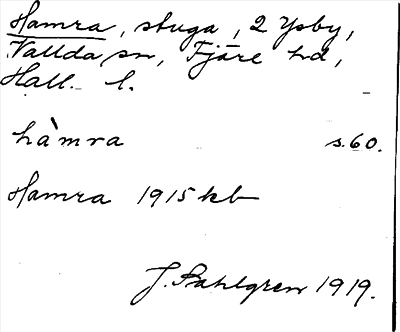 Hamra, stuga, 2 Ysby,
Vallda sn, Fjäre hd,
Hall. l.
hàmra s. 60.
Hamra 1915 kb
J. Sahlgren 1919.